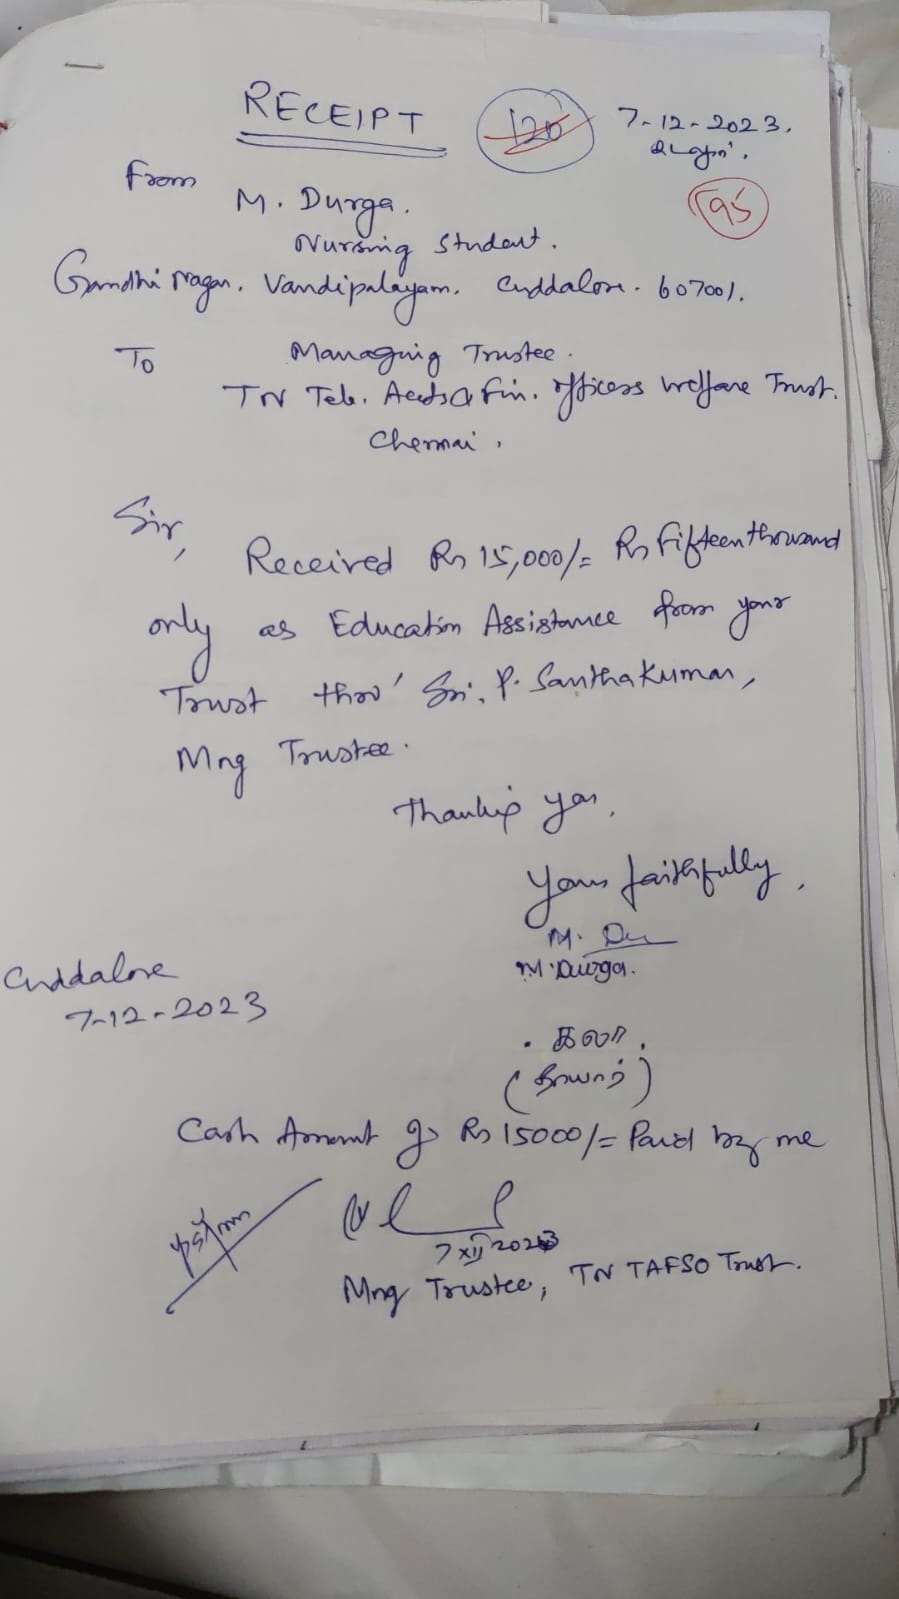 RECEIPT
120
7-12-2023.
கடலூர்.
95
From
M. Durga.
Nursing Student.
Gandhi Nagar. Vandipalayam. Cuddalore. 607001.
To
Managing Trustee.
TN Tele. Accts & Fin. officers Welfare Trust.
Chennai.
Sir,
Received Rs 15,000/= Rs Fifteen thousand
only as Education Assistance from your
Trust thro' Sri. P. Santhakumar,
Mng Trustee.
Thanking you,
Yours faithfully,
M. Du
M. Durga.
Cuddalore
7-12-2023
கலா.
(தாயார்)
Cash Amount of Rs 15000/= Paid by me
7 XII 2023
Mng Trustee, TN TAFSO Trust.